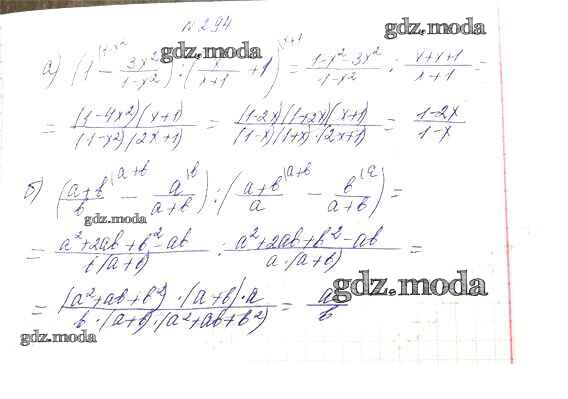 № 294
gdz.moda
gdz.moda
а) (1 |^{1-x²} - 3x²/(1-x²)) : (x/(x+1) + 1 |^{x+1}) = (1-x²-3x²)/(1-x²) : (x+x+1)/(x+1) =
= (1-4x²)(x+1)/((1-x²)(2x+1)) = (1-2x)(1+2x)(x+1)/((1-x)(1+x)·(2x+1)) = (1-2x)/(1-x)
б) ((a+b)/b |^{a+b} - a/(a+b) |^{b}) : ((a+b)/a |^{a+b} - b/(a+b) |^{a}) =
gdz.moda
= (a²+2ab+b²-ab)/(b(a+b)) : (a²+2ab+b²-ab)/(a·(a+b)) =
gdz.moda
= (a²+ab+b²)·(a+b)·a/(b·(a+b)·(a²+ab+b²)) = a/b
gdz.moda